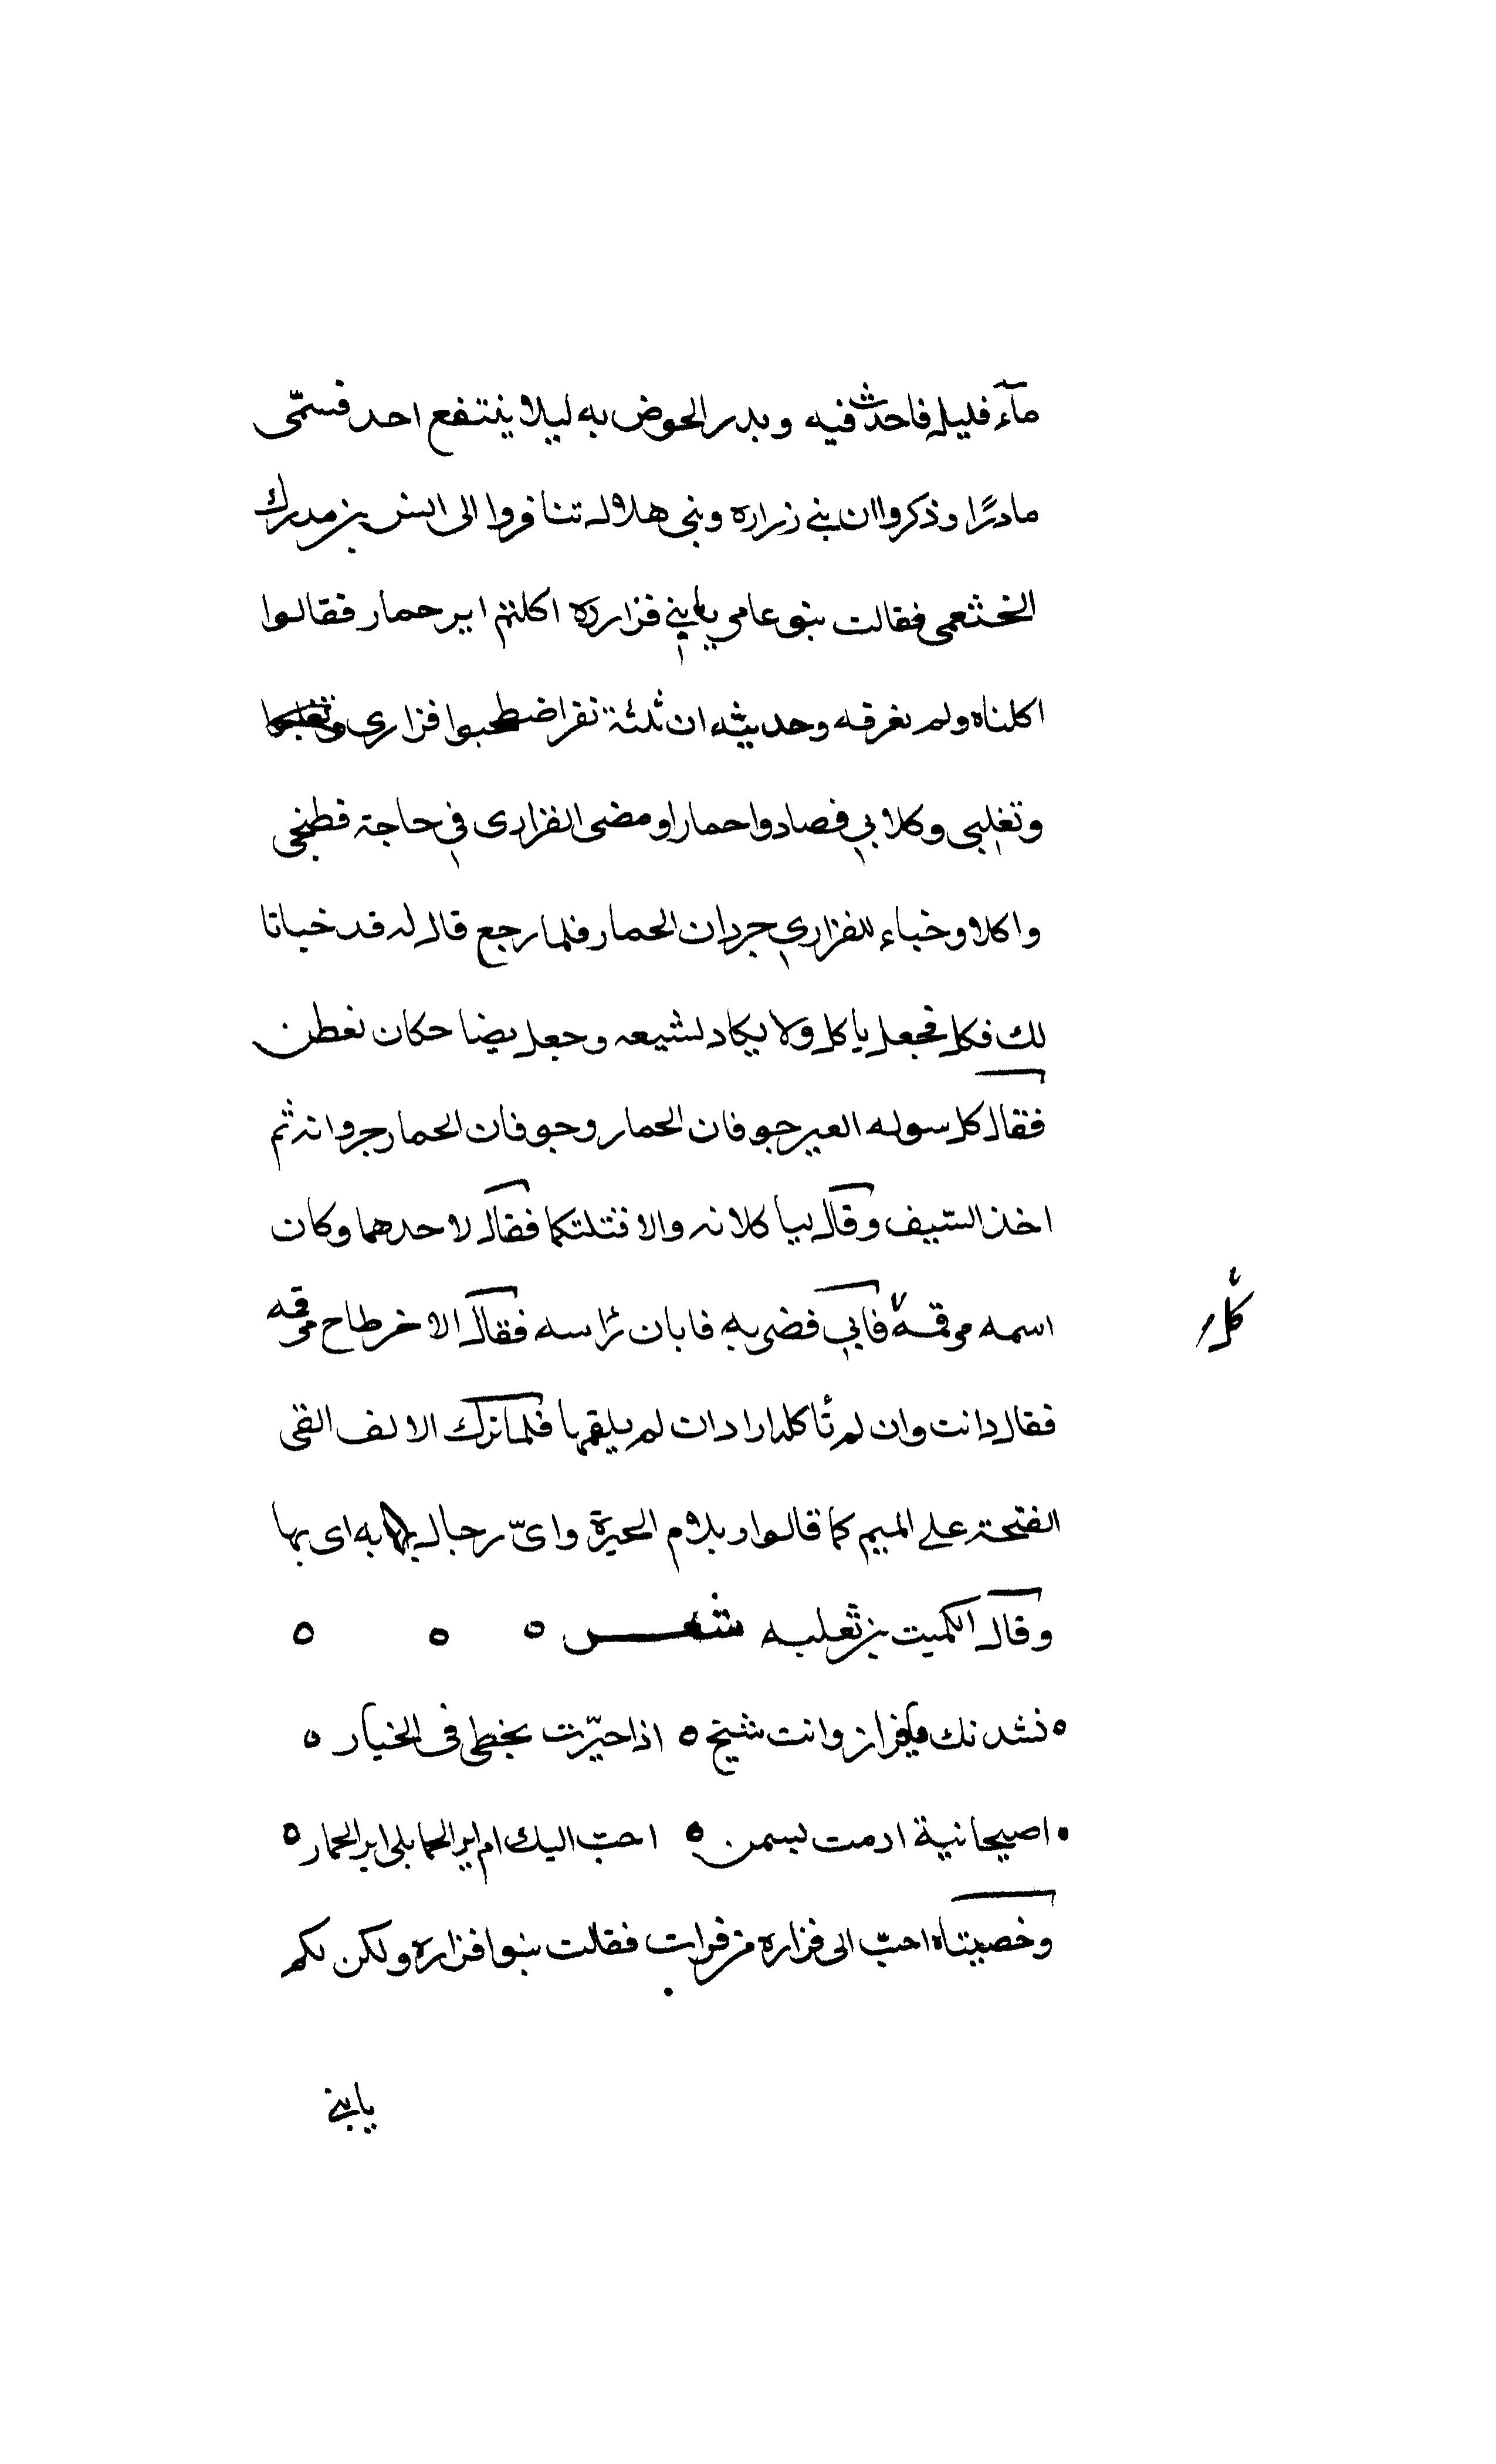 مآء قليل فاحدث فيه وبدر الحوض به ليلا ينتفع احد فسمّى
مادرًا وذكروا ان بني زراره وبنى هلال تنافروا الى انس بن مدرك
الخثعمى فقالت بنو عامر يا بني فزارره اكلتم اير حمار فقالوا
اكلناه ولم نعرفه وحديثه ان ثلثة نفر اضطحبوا فزاري
وتغلبى وكلابي فصادوا حمارا ومضى الفزارى في حاجة فطبخى
واكلا وخباء للفزاري جردان الحمار فلما رجع قال له قد خباتا
لك فكل فجعل ياكل ولا يكاد لشيعه وجعل يضاحكان نفطن
فقال كل سوله العير جوفان الحمار وجوفان الحمار جروانه ثم
اخذ السّيف وقال ليا كلانه والا قتلتكما فقال لاحدهما وكان
اسمه مرقمة فابي فضربه فابان راسه فقال الاخر طاح مرقمه
فقال دانت وان لم تأكله ارادات لم يلقمها فلما ترك الالف القى
الفتحة على الميم كما قالوا ويلام الحيرة واىّ رجال به اى بها
وقال الكميت بن ثعلبه شعر ه ه ه
ه نشدتك يافزاز وانت شيخ ه اذا حيّرت بخطى فى الخيار ه
• اصيحانية ادمت بسمن ه احبّ اليك ام اير الحمابلى اير الحمار ه
وخصيتاه احبّ الى فزاره من فرات فقالت بنوا فزاره ولكن لكم
يا بني